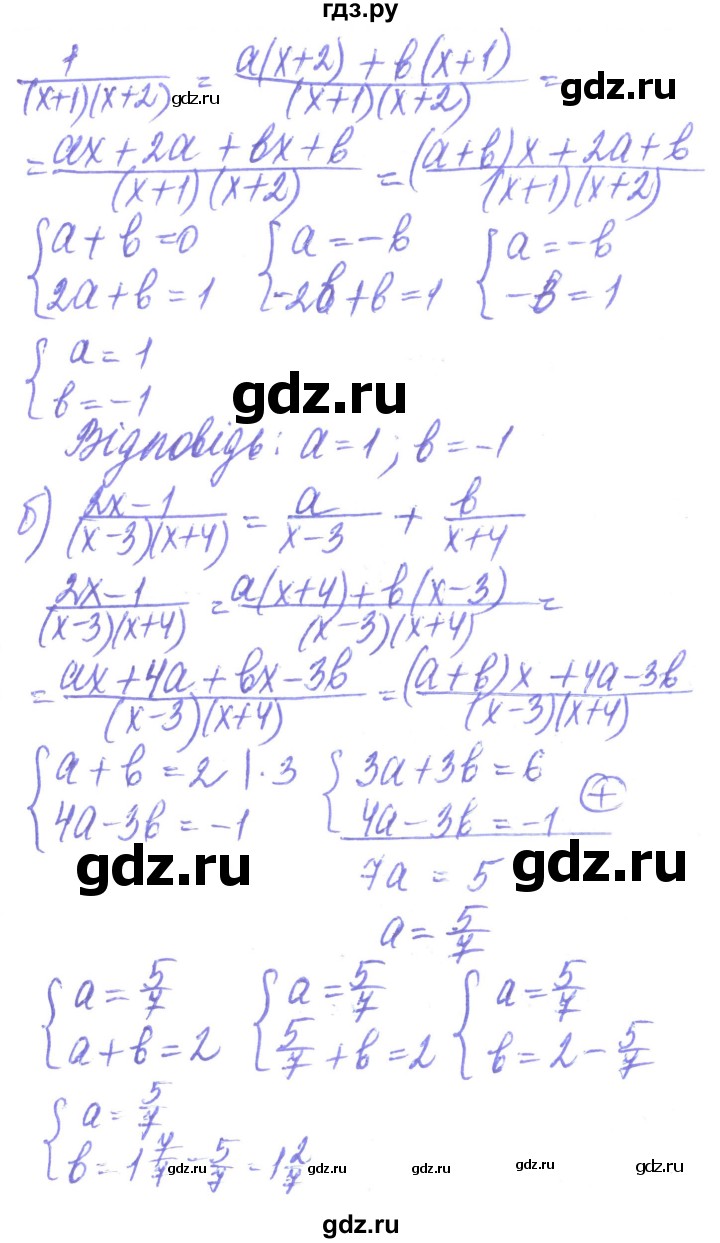 гдз.ру
1/((x+1)(x+2)) = (a(x+2) + b(x+1))/((x+1)(x+2)) =
gdz.ru gdz.ru
= (ax + 2a + bx + b)/((x+1)(x+2)) = ((a+b)x + 2a + b)/((x+1)(x+2))
{ a + b = 0 { a = -b { a = -b
{ 2a + b = 1 { -2b + b = 1 { -b = 1
{ a = 1
{ b = -1
gdz.ru
Відповідь: a = 1; b = -1
б) (2x-1)/((x-3)(x+4)) = a/(x-3) + b/(x+4)
(2x-1)/((x-3)(x+4)) = (a(x+4) + b(x-3))/((x-3)(x+4)) =
= (ax + 4a + bx - 3b)/((x-3)(x+4)) = ((a+b)x + 4a - 3b)/((x-3)(x+4))
{ a + b = 2 | · 3 { 3a + 3b = 6
{ 4a - 3b = -1 { 4a - 3b = -1 (+)
gdz.ru gdz.ru
7a = 5
a = 5/7
{ a = 5/7 { a = 5/7 { a = 5/7
{ a + b = 2 { 5/7 + b = 2 { b = 2 - 5/7
{ a = 5/7
{ b = 1 7/7 - 5/7 = 1 2/7
gdz.ru gdz.ru gdz.ru gdz.ru gdz.ru
gdz.ru